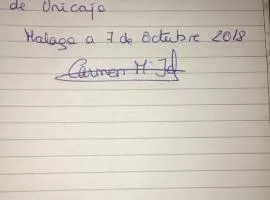 de Unicaja
Malaga a 7 de Octubre 2018
Carmen Mª